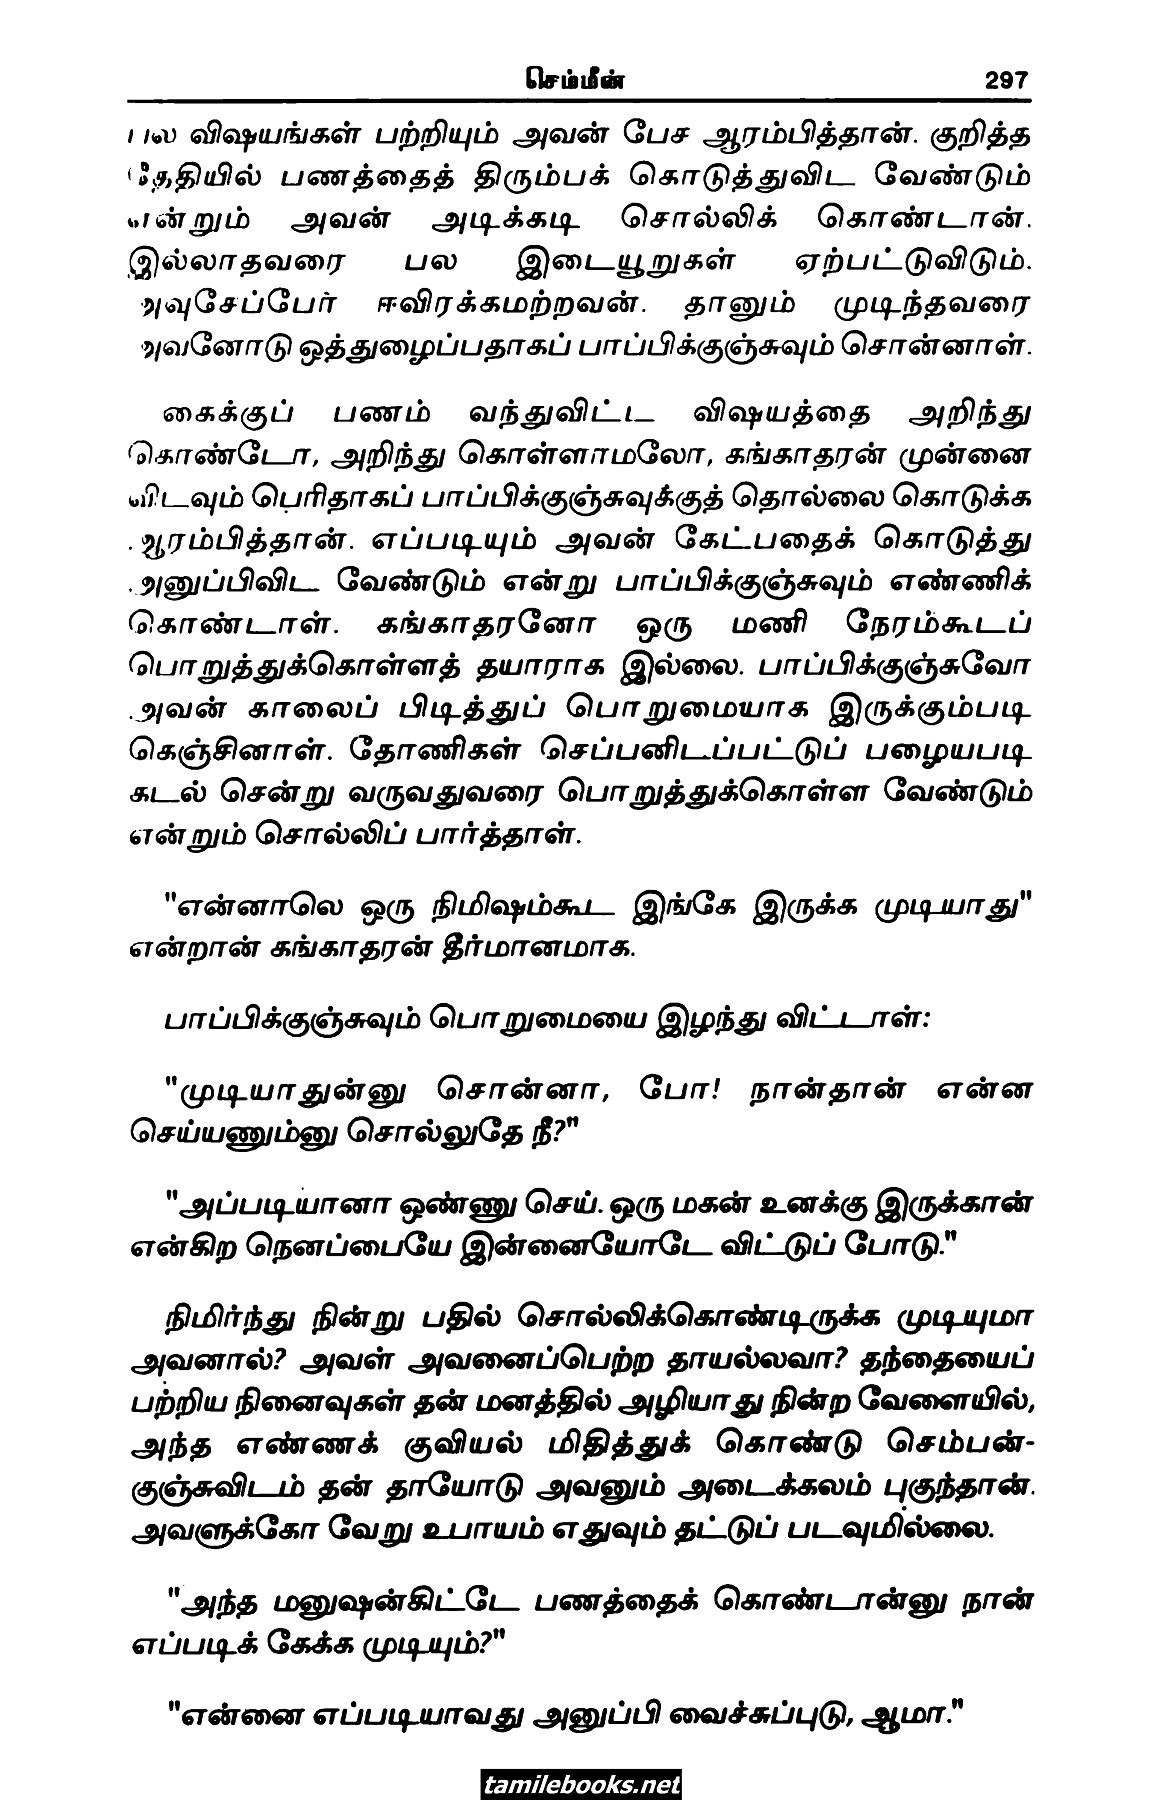 செம்மீன் 297
பல விஷயங்கள் பற்றியும் அவன் பேச ஆரம்பித்தான். குறித்த
தேதியில் பணத்தைத் திரும்பக் கொடுத்துவிட வேண்டும்
என்றும் அவன் அடிக்கடி சொல்லிக் கொண்டான்.
இல்லாதவரை பல இடையூறுகள் ஏற்பட்டுவிடும்.
அவுசேப்பேர் ஈவிரக்கமற்றவன். தானும் முடிந்தவரை
அவனோடு ஒத்துழைப்பதாகப் பாப்பிக்குஞ்சுவும் சொன்னாள்.
கைக்குப் பணம் வந்துவிட்ட விஷயத்தை அறிந்து
கொண்டோ, அறிந்து கொள்ளாமலோ, கங்காதரன் முன்னை
விடவும் பெரிதாகப் பாப்பிக்குஞ்சுவுக்குத் தொல்லை கொடுக்க
ஆரம்பித்தான். எப்படியும் அவன் கேட்பதைக் கொடுத்து
அனுப்பிவிட வேண்டும் என்று பாப்பிக்குஞ்சுவும் எண்ணிக்
கொண்டாள். கங்காதரனோ ஒரு மணி நேரம்கூடப்
பொறுத்துக்கொள்ளத் தயாராக இல்லை. பாப்பிக்குஞ்சுவோ
அவன் காலைப் பிடித்துப் பொறுமையாக இருக்கும்படி
கெஞ்சினாள். தோணிகள் செப்பனிடப்பட்டுப் பழையபடி
கடல் சென்று வருவதுவரை பொறுத்துக்கொள்ள வேண்டும்
என்றும் சொல்லிப் பார்த்தாள்.
"என்னாலெ ஒரு நிமிஷம்கூட இங்கே இருக்க முடியாது"
என்றான் கங்காதரன் தீர்மானமாக.
பாப்பிக்குஞ்சுவும் பொறுமையை இழந்து விட்டாள்:
"முடியாதுன்னு சொன்னா, போ! நான்தான் என்ன
செய்யணும்னு சொல்லுதே நீ?"
"அப்படியானா ஒண்ணு செய். ஒரு மகன் உனக்கு இருக்கான்
என்கிற நெனப்பையே இன்னையோடே விட்டுப் போடு."
நிமிர்ந்து நின்று பதில் சொல்லிக்கொண்டிருக்க முடியுமா
அவனால்? அவள் அவனைப்பெற்ற தாயல்லவா? தந்தையைப்
பற்றிய நினைவுகள் தன் மனத்தில் அழியாது நின்ற வேளையில்,
அந்த எண்ணக் குவியல் மிதித்துக் கொண்டு செம்பன்-
குஞ்சுவிடம் தன் தாயோடு அவனும் அடைக்கலம் புகுந்தான்.
அவளுக்கோ வேறு உபாயம் எதுவும் தட்டுப் படவுமில்லை.
"அந்த மனுஷன்கிட்டே பணத்தைக் கொண்டான்னு நான்
எப்படிக் கேக்க முடியும்?"
"என்னை எப்படியாவது அனுப்பி வைச்சுப்புடு, ஆமா."
tamilebooks.net